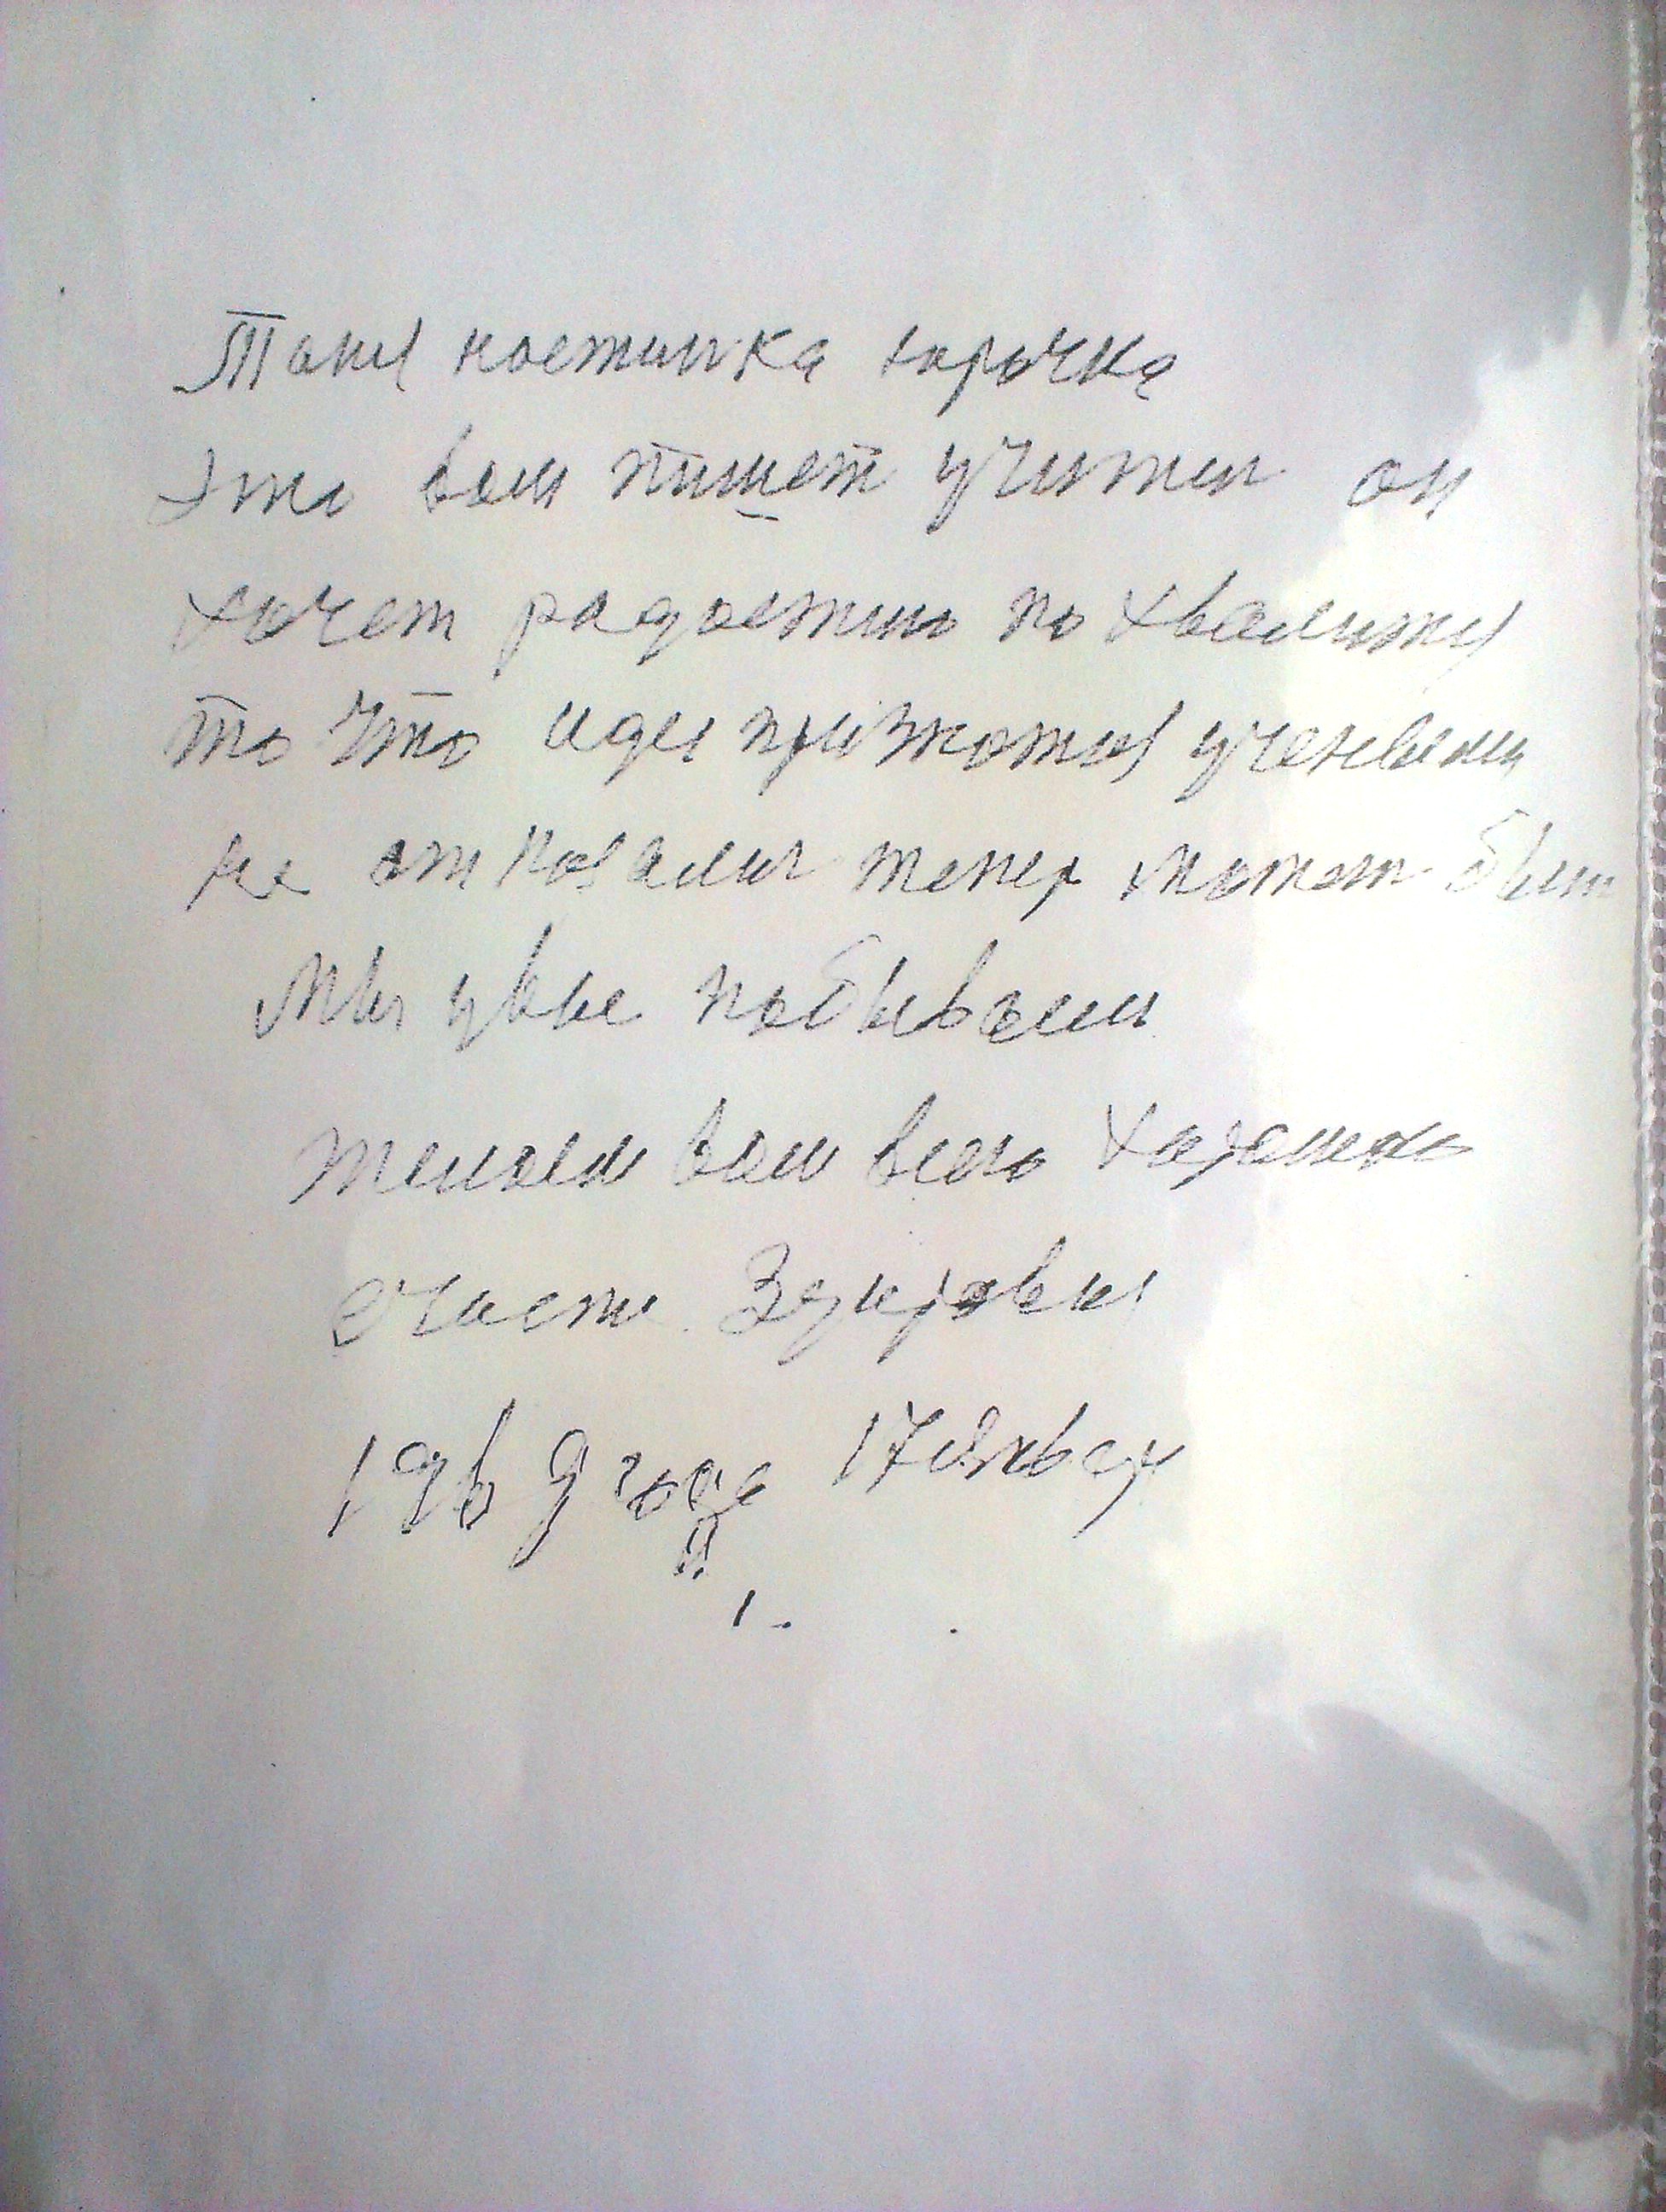 Таня костинка юрочка
Это вам пишет учители он
хочет радостино по хвалитя
то что иде ученевами
не отказалис тепер может быт
мы увье побывали
желаем вам всего харошехо
счасте Здуровия
1969 года 17 январ